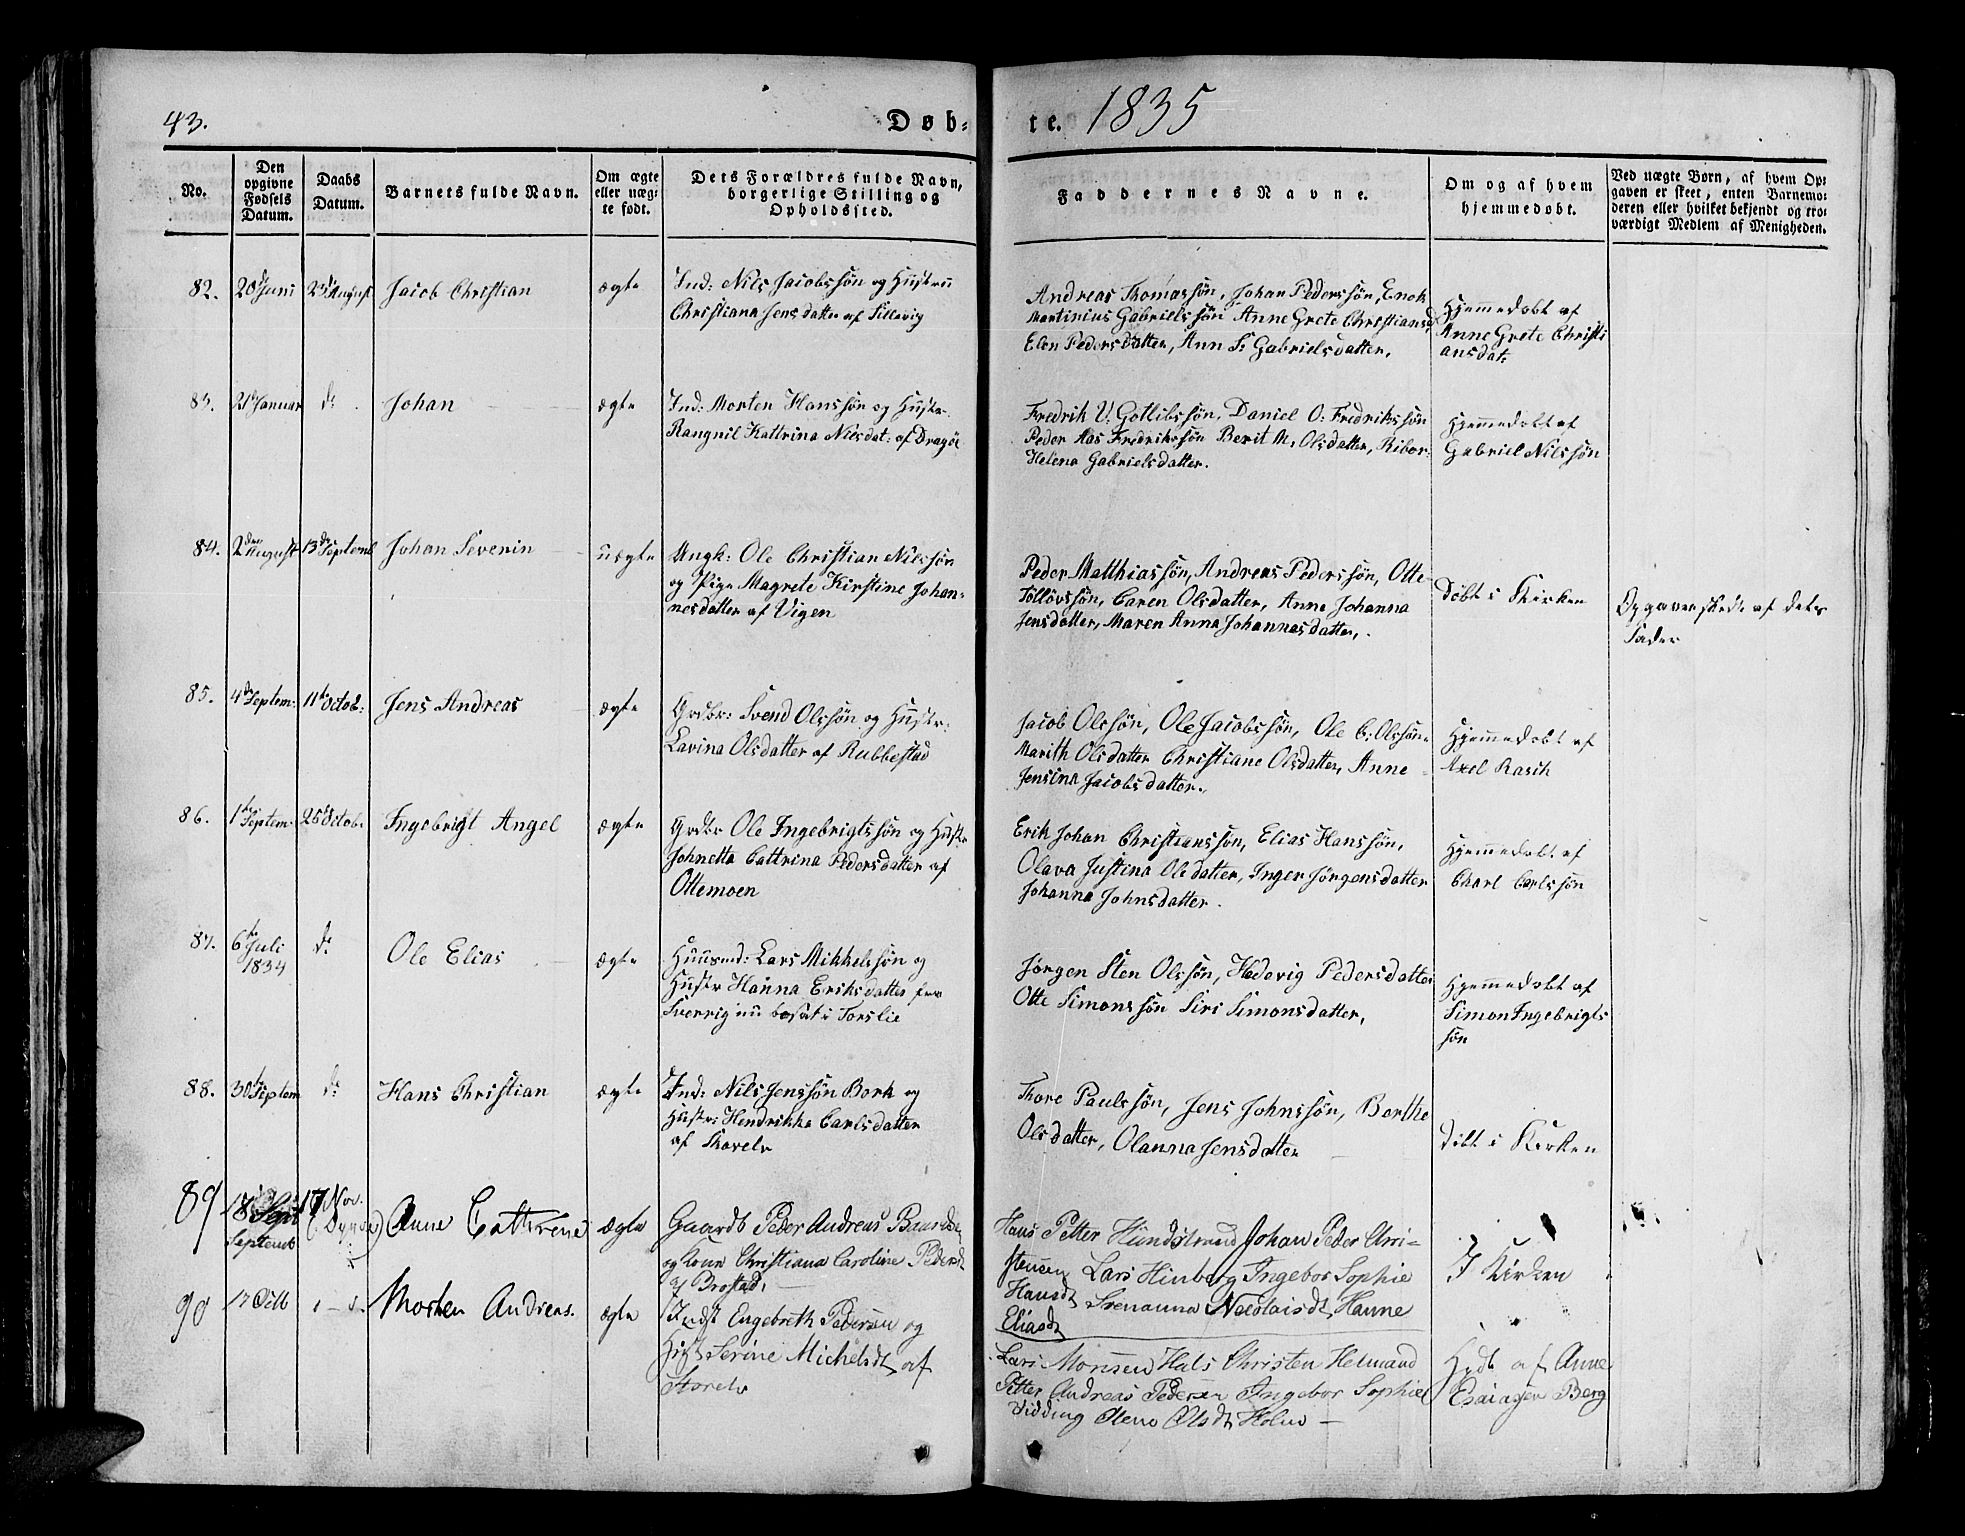 43.
Døb-
te. 1835
No.
Den opgivne Fødsels Datum.
Daabs Datum.
Barnets fulde Navn.
Om ægte eller uæg-te født.
Dets Forældres fulde Navn, borgerlige Stilling og Opholdssted.
Faddernes Navne.
Om og af hvem hjemmedøbt.
Ved uægte Børn, af hvem Op-gaven er skeet, enten Barnemo-deren eller hvilket bekjendt og tro-værdigt Medlem af Menigheden.
82.
20de Juni
23de August
Jacob Christian
ægte
Ind: Nils Jacobssøn og Hustru
Christiana Jensdatter af Sillevig
Andreas Thomassøn, Johan Pederssøn, Enok
Martinius Gabrielssøn Anne Grete Christiansd
Elen Pedersdatter, Ann S: Gabrielsdatter.
Hjemmedøbt af
Anne Grete Christi
ansdat:
83.
21de Januar
do.
Johan
ægte
Ind: Morten Hanssøn og Hustr.
Rangnil Kattrina Nilsdat: af Dragöe
Fredrik U: Gotlibssøn, Daniel O: Fredrikssøn
Peder Aas Fredrikssøn Berit M, Olsdatter, Ribor:
Helena Gabrielsdatter.
Hjemmedøbt af
Gabriel Nilssøn
84.
2den August
13de Septemb
Johan Severin
uægte
Ungk: Ole Christian Nilssøn
og Pige Magrete Kirstine Johan-
nesdatter af Vigen
Peder Matthiassøn, Andreas Pederssøn, Otte
Tollövssøn, Caren Olsdatter, Anne Johanna
Jensdatter, Maren Anna Johannasdatter,.
Døbt i Kirken
Opgaven skede af dets
Fader
85.
4de Septem:
11te Octob:
Jens Andreas
ægte
Grdbr: Svend Olssøn og Hustr:
Lavina Olsdatter af Rubbestad
Jacob Olssøn, Ole Jacobssøn, Ole C: Olssøn
Marith Olsdatter Christiane Olsdatter, Anne
Jensina Jacobsdatter.
Hjemmedøbt af
Axel Rasch
86.
1te Septem:
25de Octob:
Ingebrigt Angel
ægte
Grdbr Ole Ingebrigtssøn og Hustr
Johnetta Cattrina Pedersdatter af
Ottemoen
Erik Johan Christianssøn, Elias Hanssøn,
Olava Justina Olsdatter, Inger Jörgensdatter
Johanna Johnsdatter.
Hjemmedøbt af
Charl Carlssøn
87.
6te Juli
1834
do
Ole Elias
ægte
Huusmd: Lars Mikkelssøn og
Hustr Hanna Eriksdatter fra
Sverrig nu bosat i Torslie
Jørgen Sten Olssøn, Hedevig Pedersdatter
Otte Simonssøn Siri Simonsdatter,
Hjemmedøbt af
Simon Ingebrigts
søn
88.
30te Septem
do
Hans Christian
ægte
Ind: Nils Jenssøn Bork og
Hustr: Hendrikka Carlsdatter
af Skovelv
Thore Paulssøn, Jens Johnssøn, Borthe
Olsdatter, Olanna Jensdatter
Döbt i Kirken
89
18 Sept
Septemb
17 Nov.
Anne Cathrene
ægte
Gaardb Peder Andreas
og Kone Christiana Caroline Pedersd
af Brostad.
Hans Petter Hundstrand Johan Peder Chri-
stensen Lars Hinberg Ingebor Sophie
Hansdt Srenanna Nicolaisdt, Hanne
Eliasdt
I Kirken
90
17 Octb
Morten Andreas.
ægte
Indst Engebreth Pedersen og
Hust Serine Michelsdt af
Lars Monsen Hals Christen Helmand
Petter Andreas Pedersen Ingebor Sophie
Vidding Olene Olsdt Holm –
Hjdt af Anne
Esaiasen Berg